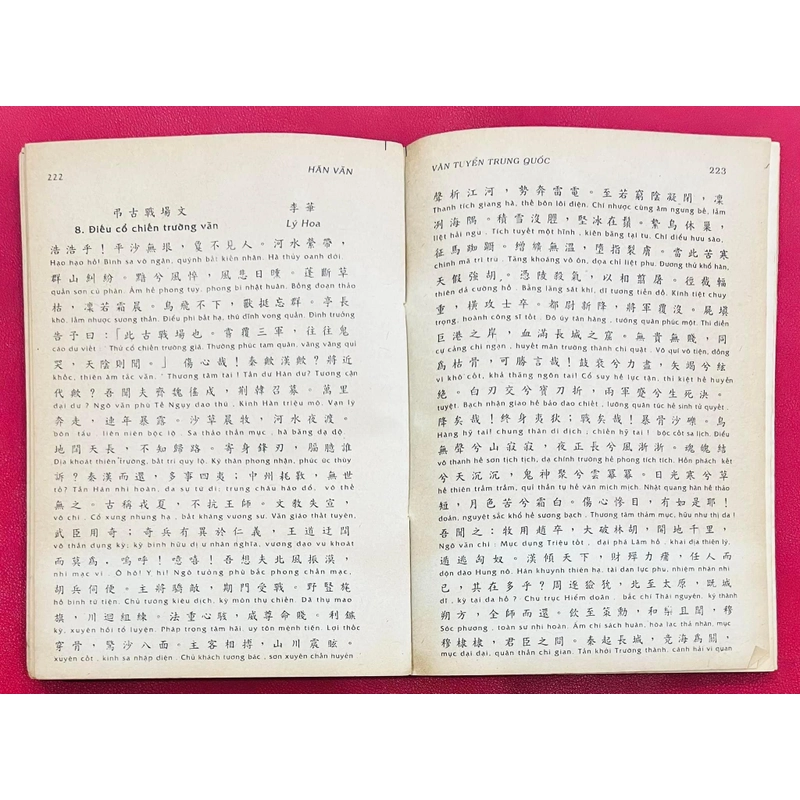 222
HÁN VĂN
弔古戰場文 李華
8. Điếu cổ chiến trường văn Lý Hoa
浩浩乎！平沙無垠，敻不見人。河水縈帶，
Hạo hạo hồ! Bình sa vô ngân, quýnh bất kiến nhân. Hà thủy oanh đới
群山糾紛。黯兮風悴，風悲日曛。蓬斷草
quần sơn củ phân. Ảm hề phong tụy, phong bi nhật huân. Bồng đoạn thảo
枯，凜若霜晨。鳥飛不下，獸挺忘群。亭長
khô, lẫm nhược sương thần. Điểu phi bất hạ, thú đĩnh vong quần. Đình trưởng
告予曰：「此古戰場也。嘗覆三軍，往往鬼
cáo dư viết: Thử cổ chiến trường giả. Thường phúc tam quân, vãng vãng quỉ
哭，天陰則聞。」傷心哉！秦歟漢歟？將近
khốc, thiên âm tắc văn.' Thương tâm tai! Tần dư Hán dư? Tương cận
代歟？吾聞夫齊魏徭戍，荊韓召募。萬里
đại dư? Ngô văn phù Tề Ngụy dao thú, Kinh Hàn triệu mộ. Vạn lý
奔走，連年暴露。沙草晨牧，河水夜渡。
bôn tẩu, liên niên bộc lộ. Sa thảo thần mục, hà băng dạ độ.
地闊天長，不知歸路。寄身鋒刃，腷臆誰
Địa khoát thiên trường, bất tri quy lộ. Ký thân phong nhận, phúc ức thùy
訴？秦漢而還，多事四夷；中州耗斁，無世
tố? Tần Hán nhi hoàn, đa sự tứ di; trung châu háo đố, vô thế
無之。古稱戎夏，不抗王師。文教失宣，
vô chi. Cổ xưng nhung hạ, bất kháng vương sư. Văn giáo thất tuyên,
武臣用奇；奇兵有異於仁義，王道迂闊
võ thần dụng kỳ; kỳ binh hữu dị ư nhân nghĩa, vương đạo vu khoát
而莫為。嗚呼！噫嘻！吾想夫北風振漠，
nhi mạc vi. Ô hô! Y hi! Ngô tưởng phù bắc phong chấn mạc,
胡兵伺便。主將驕敵，期門受戰。野豎旄
hồ binh tứ tiện. Chủ tướng kiêu địch, kỳ môn thụ chiến. Dã thụ mao
旗，川迴組練。法重心駭，威尊命賤。利鏃
kỳ, xuyên hồi tổ luyện. Pháp trọng tâm hãi, uy tôn mệnh tiện. Lợi thốc
穿骨，驚沙八面。主客相搏，山川震眩，
xuyên cốt, kinh sa nhập diện. Chủ khách tương bác, sơn xuyên chấn huyễn
VĂN TUYỂN TRUNG QUỐC
223
聲析江河，勢奔雷電。至若窮陰凝閉，凜
Thanh tích giang hà, thế bôn lôi điện. Chí nhược cùng âm ngưng bế, lẫm
冽海隅。積雪沒脛，堅冰在鬚。鷙鳥休巢，
liệt hải ngu. Tích tuyết một hĩnh, kiên băng tại tu. Chí điểu hưu sào,
征馬踟躕。繒纊無溫，墮指裂膚。當此苦寒
chinh mã trì trù. Tăng khoáng vô ôn, đọa chỉ liệt phu. Đương thử khổ hàn,
天假強胡。憑陵殺氣，以相翦屠。徑截輜
thiên đả cường hồ. Bằng lăng sát khí, dĩ tương tiễn đồ. Kinh tiệt chuy
重，橫攻士卒。都尉新降，將軍覆沒。屍塡
trọng, hoành công sĩ tốt. Đô úy tân hàng, tướng quân phúc một. Thi điền
巨港之岸，血滿長城之窟。無貴無賤，同
cự cảng chi ngạn, huyết mãn trường thành chi quật. Vô quí vô tiện, đồng
為枯骨，可勝言哉！鼓衰兮力盡，矢竭兮絃
vi khô cốt, khả thăng ngôn tai! Cổ suy hề lực tận, thỉ kiệt hề huyền
絕。白刃交兮寶刀折，兩軍蹙兮生死決。
tuyệt. Bạch nhận giao hề bảo đao chiết, lưỡng quân túc hề sinh tử quyết.
降矣哉！終身夷狄；戰矣哉！暴骨沙礫。鳥
Hàng hỹ tai! chung thân di địch, chiến hỹ tai! bộc cốt sa lịch. Điểu
無聲兮山寂寂，夜正長兮風淅淅。魂魄結
vô thanh hề sơn tịch tịch, dạ chính trường hề phong tích tích. Hồn phách kết
兮天沉沉，鬼神聚兮雲冪冪。日光寒兮草
hề thiên trầm trầm, quỉ thần tụ hề vân mịch mịch. Nhật quang hàn hề thảo
短，月色苦兮霜白。傷心慘目，有如是耶！
đoản, nguyệt sắc khổ hề sương bạch. Thương tâm thảm mục, hữu như thị da!
吾聞之：牧用趙卒，大破林胡，開地千里，
Ngô văn chi: Mục dụng Triệu tốt, đại phá Lâm hồ, khai địa thiên lý,
遁逃匈奴。漢傾天下，財殫力痡，任人而
độn đào Hung nô. Hán khuynh thiên hạ, tài đan lực phu, nhiệm nhân nhi
已，其在多乎？周逐獫狁，北至太原，旣城
dĩ, kỳ tại đa hồ? Chu trục Hiểm doãn, bắc chí Thái nguyên, ký thành
朔方，全師而還。飲至策勳，和樂且閒，穆
Sóc phương, toàn sư nhi hoàn. Ẩm chí sách huân, hòa lạc thả nhàn, mục
穆棣棣，君臣之間。秦起長城，竟海為關，
mục đại đại, quân thần chi gian. Tần khởi Trường thành, cánh hải vi quan